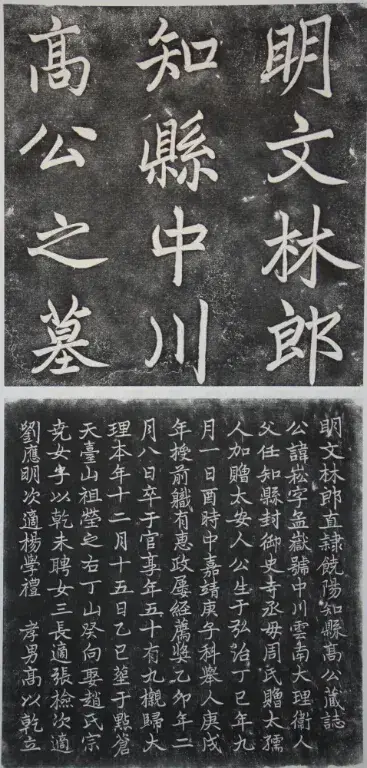 明文林郎
知縣中川
高公之墓
明文林郎直隸饒陽知縣高公藏誌
公諱崧字孟嶽號中川雲南大理衛人
父任知縣封御史寺丞母周氏贈太孺
人加贈太安人公生于弘治丁巳年九
月一日酉時中嘉靖庚子科舉人庚戌
年授前職有惠政屢經薦獎乙卯年二
月八日卒于官享年五十有九櫬歸大
理本年十二月十五日乙巳葬于點蒼
天臺山祖塋之右丁山癸向娶趙氏宗
堯女子以乾未聘女三長適張檢次適
劉應明次適楊學禮 孝男高以乾立